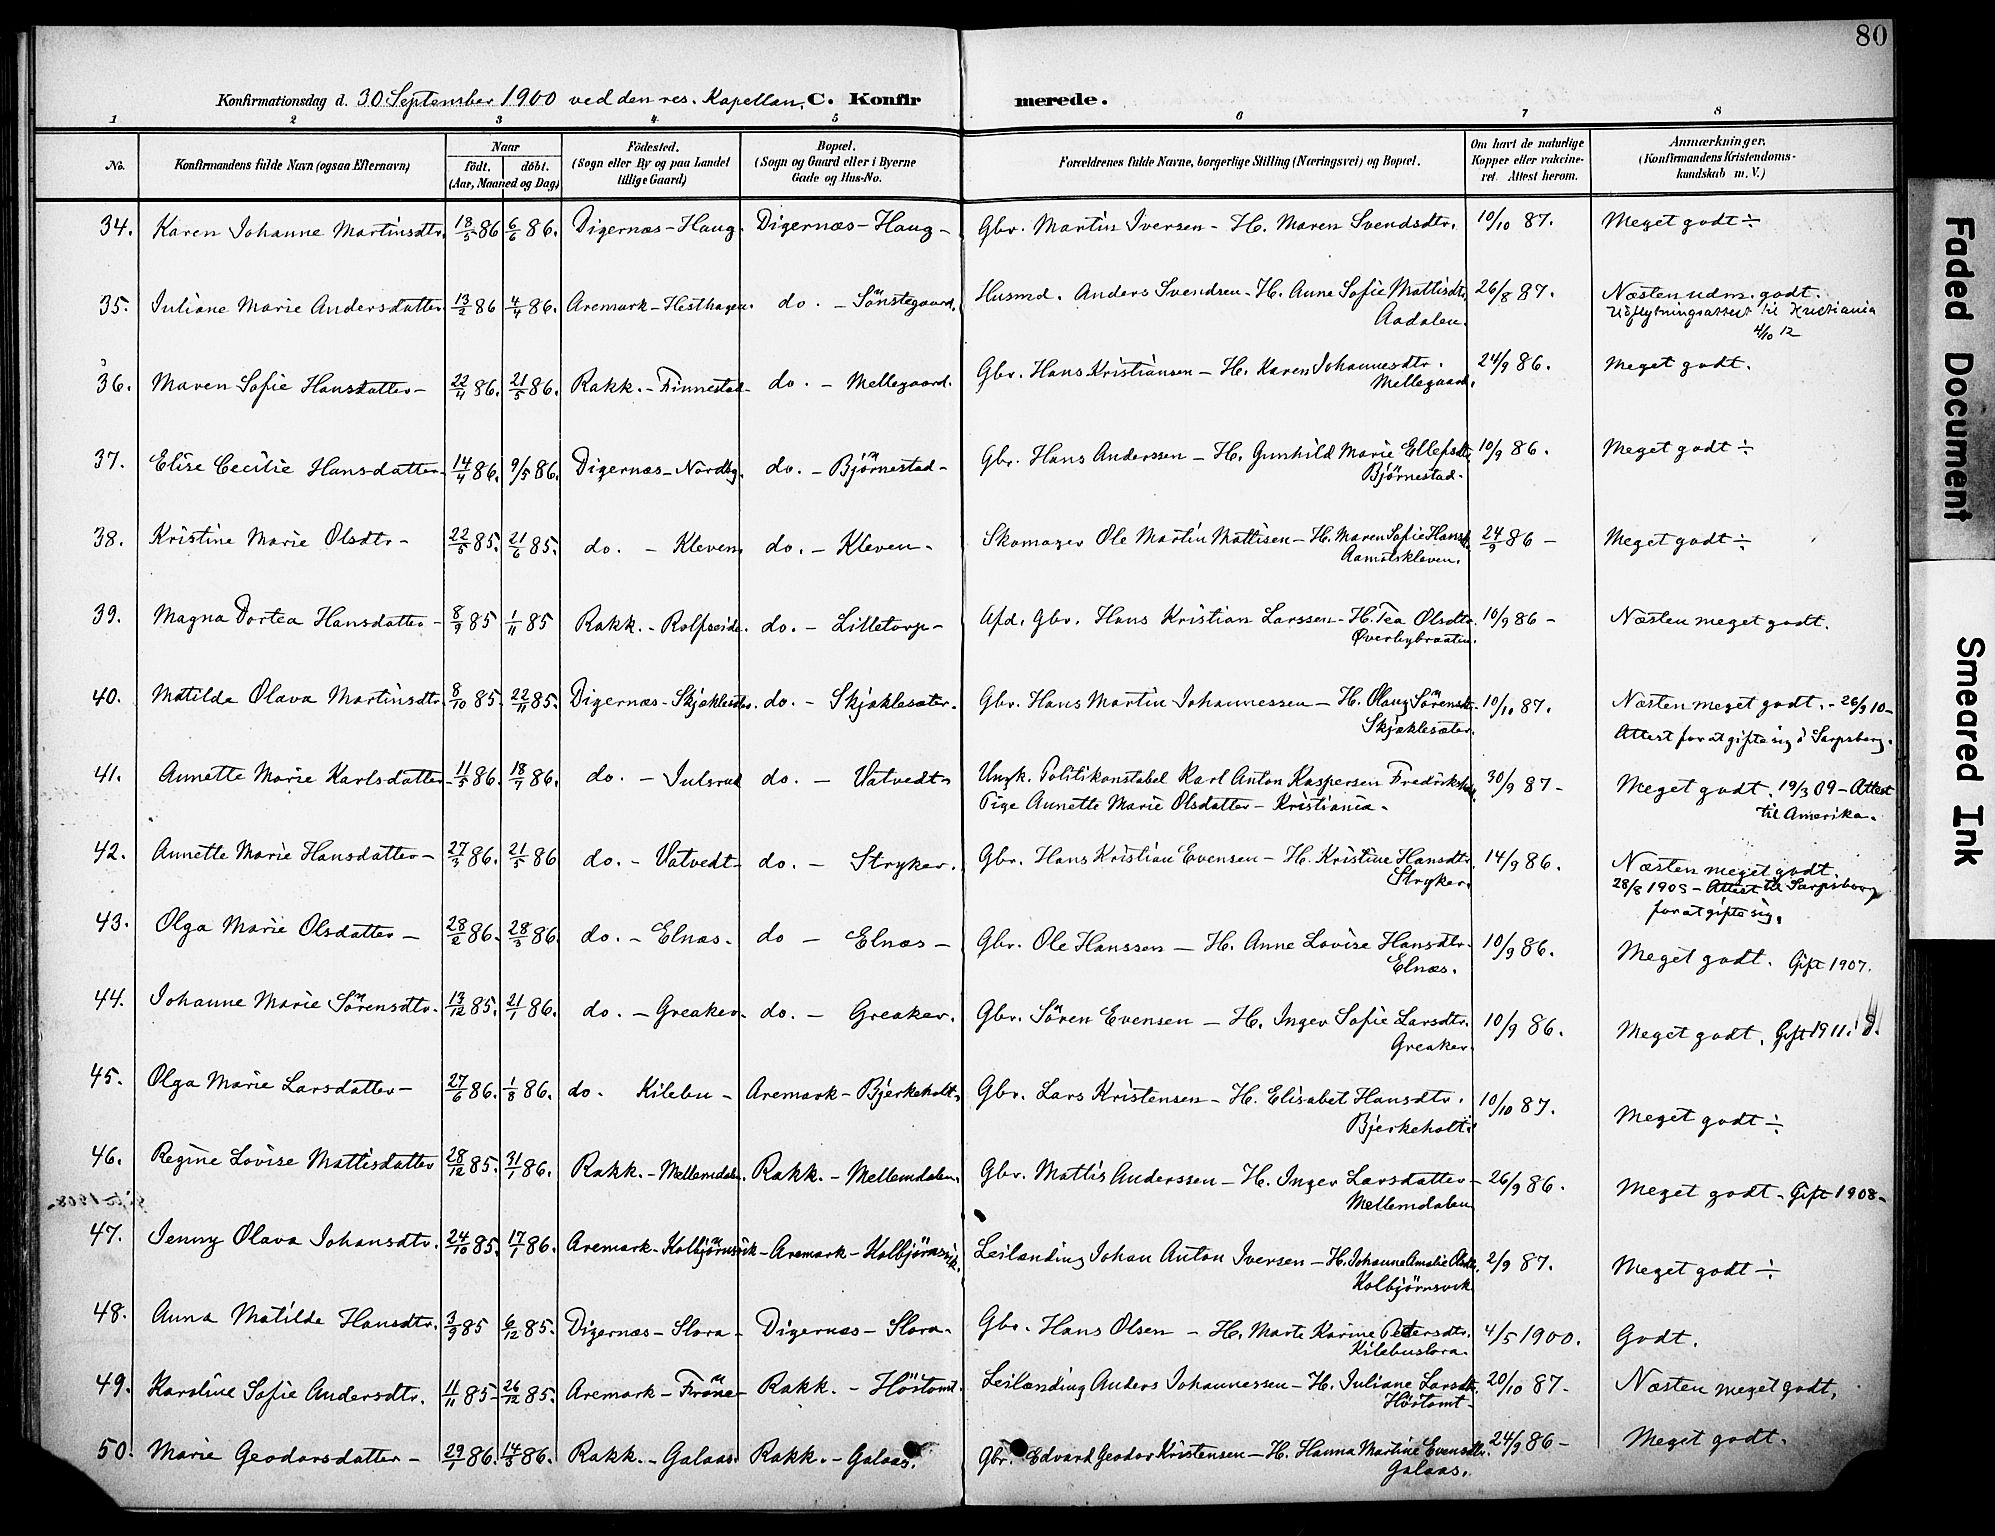 80
Konfirmationsdag d. 30 September 1900 ved den res. Kapellan. C. Konfirmerede.
1 2 3 4 5 6 7 8
No. Konfirmandens fulde Navn (ogsaa Efternavn) Naar født. døbt. (Aar, Maaned og Dag) Fødested. (Sogn eller By og paa Landet tillige Gaard) Bopæl. (Sogn og Gaard eller i Byerne Gade og Hus-No. Forældrenes fulde Navne, borgerlige Stilling (Næringsvei) og Bopæl. Om havt de naturlige Kopper eller vaccineret. Attest herom. Anmærkninger. (Konfirmandens Kristendomskundskab m. V.)
34. Karen Johanne Martinsdtr. 18/5 86 6/6 86. Digernæs - Haug. Digernæs - Haug - Gbr. Martin Iversen - H. Maren Svendsdtr. 10/10 87. Meget godt ÷
35. Juliane Marie Andersdatter 13/2 86 4/4 86. Aremark - Hesthagen. do. - Sönstegaard. Husmd. Anders Svendsen - H. Anne Sofie Mattisdtr. 26/8 87. Næsten udm. godt.
Aadalen. Udflytningsattest til Kristiania
4/10 12
36. Maren Sofie Hansdatter - 22/4 86. 21/5 86. Rakk. - Finnestad do. - Mellegaard. Gbr. Hans Kristiansen - H. Karen Johannesdtr. 24/9 86. Meget godt.
Mellegaard.
37. Elise Cecilie Hansdatter 14/4 86. 9/5 86. Digernæs - Nordbg. do. - Björnestad - Gbr. Hans Anderssen - H. Gunhild Marie Ellefsdtr. 10/9 86. Meget godt ÷
Björnestad -
38. Kristine Marie Olsdtr - 22/5 85. 21/6 85. do. - Kleven. do. - Kleven - Skomager Ole Martin Mattisen - H. Maren Sofie Hansd. 24/9 86 - Meget godt ÷
Aamotskleven.
39. Magna Dortea Hansdatter - 8/9 85 1/11 85 Rakk. - Rolfseide. do. - Lilletorp - Afd. Gbr. Hans Kristian Larssen - H. Tea Olsdtr. 10/9 86 - Næsten meget godt.
Øverbybraaten.
40. Matilde Olava Martinsdtr. 8/10 85. 22/11 85. Digernæs - Skjæklesæter. do. - Skjæklesæter. Gbr. Hans Martin Johannessen - H. Olaug Sörensdtr. 10/10 87. Næsten meget godt. - 26/9 10 -
Skjæklesæter. Attest for at gifte sig i Sarpsborg.
41. Annette Marie Karlsdatter - 11/5 86. 18/7 86. do. - Julsrud do. - Vatvedt - Ungk. Politikonstabel Karl Anton Kaspersen Fredrikshald. 30/9 87 - Meget godt. 19/3 09 - Attest
Pige Annette Marie Olsdatter - Kristiania - til Amerika.
42. Annette Marie Hansdatter - 27/3 86. 21/5 86 do. - Vatvedt - do. - Stryker. Gbr. Hans Kristian Evensen - H. Kristine Hansdtr. 14/9 86. Næsten meget godt.
Stryker. 28/8 1905 - Attest til Sarpsborg
for at gifte sig.
43. Olga Marie Olsdatter - 28/2 86. 28/3 86. do. - Elnæs. do - Elnæs - Gbr. Ole Hanssen - H. Anne Lovise Hansdtr. 10/9 86. Meget godt. Gift 1907.
Elnæs.
44. Johanne Marie Sörensdtr. 13/12 85. 21/1 86. do. - Greaker. do. - Greaker. Gbr. Sören Evensen - H. Inger Sofie Larsdtr. 10/9 86. Meget godt. Gift 1911.
Greaker.
45. Olga Marie Larsdatter - 27/6 86. 1/8 86. do. Kilebu - Aremark - Bjerkeholt. Gbr. Lars Kristensen - H. Elisabet Hansdtr. 10/10 87. Meget godt ÷
Bjerkeholt.
46. Regine Lovise Mattisdatter 28/12 85. 31/1 86. Rakk. - Mellemdalen. Rakk. - Mellemdalen. Gbr. Mattis Anderssen - H. Inger Larsdatter - 26/9 86. Meget godt - Gift 1908 -
Mellemdalen
47. Jenny Olava Johansdtr. 24/10 85. 17/1 86. Aremark - Kolbjörnsvik - Aremark - Kolbjörnsvik. Leilænding Johan Anton Iversen - H. Johanne Amalie Olsdtr. 2/9 87. Meget godt ÷
Kolbjörnsvik
48. Anna Matilde Hansdtr. 3/9 85 6/12 85. Digernæs - Slora - Digernæs - Slora. Gbr. Hans Olsen - H. Marte Karine Petersdtr. 4/5 1900. Godt.
Kilebuslora.
49. Karoline Sofie Andersdtr. 11/11 85 - 26/12 85. Aremark - Fröne - Rakk. - Höitomt. Leilænding Anders Johannessen - H. Juliane Larsdtr. 20/10 87 - Næsten meget godt.
Höitomt -
50. Marie Geodorsdatter - 29/1 86. 14/3 86. Rakk. - Galaas. Rakk. - Galaas. Gbr. Edvard Geodor Kristensen - H. Hanna Martine Evensdtr. 24/9 86 - Meget godt.
Galaas.
Faded Document
Smeared Ink